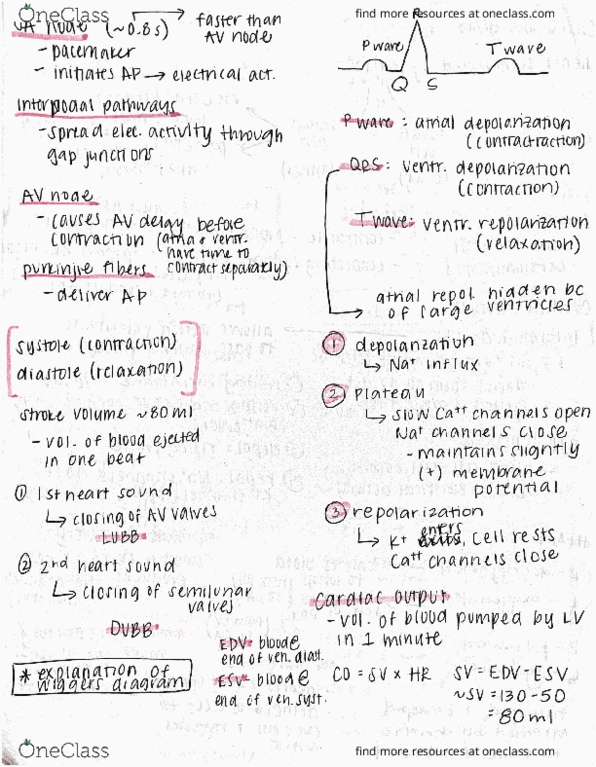 OneClass
find more resources at oneclass.com
SA node (~0.8s) → faster than
AV node
- pacemaker
- initiates AP → electrical act.
internodal pathways
- spread elec. activity through
gap junctions
AV node
- causes AV delay before
contraction (atria & ventr.
have time to
contract separately)
purkinjie fibers
- deliver AP
systole (contraction)
diastole (relaxation)
stroke volume ~80ml
- vol. of blood ejected
in one beat
① 1st heart sound
↳ closing of AV valves
LUBB
② 2nd heart sound
↳ closing of semilunar
valves
DUBB
* explanation of
wiggers diagram
EDV- blood@
end of ven. diast.
ESV- blood@
end. of ven. syst.
R
P wave
T wave
Q S
P wave: atrial depolarization
(contraction)
QRS: ventr. depolarization
(contraction)
T wave: ventr. repolarization
(relaxation)
→ atrial repol. hidden bc
of large ventricles
① depolarization
↳ Na⁺ influx
② plateau
↳ slow Ca⁺⁺ channels open
Na⁺ channels close
- maintains slightly
(+) membrane
potential
③ repolarization
enters
↳ K⁺ exits, cell rests
Ca⁺⁺ channels close
Cardiac output
- vol. of blood pumped by LV
in 1 minute
CO = SV x HR
SV = EDV - ESV
~SV = 130 - 50
= 80ml
OneClass
find more resources at oneclass.com